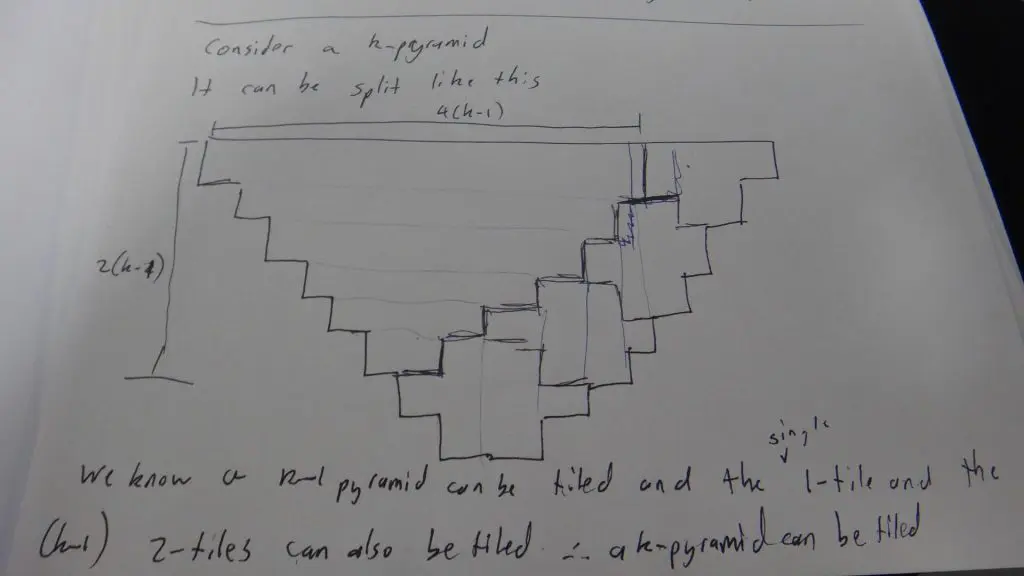 Consider a k-pyramid
It can be split like this
4(k-1)
2(k-1)
single
We know a k-1 pyramid can be tiled and the 1-tile and the
(k-1) 2-tiles can also be tiled ∴ a k-pyramid can be tiled